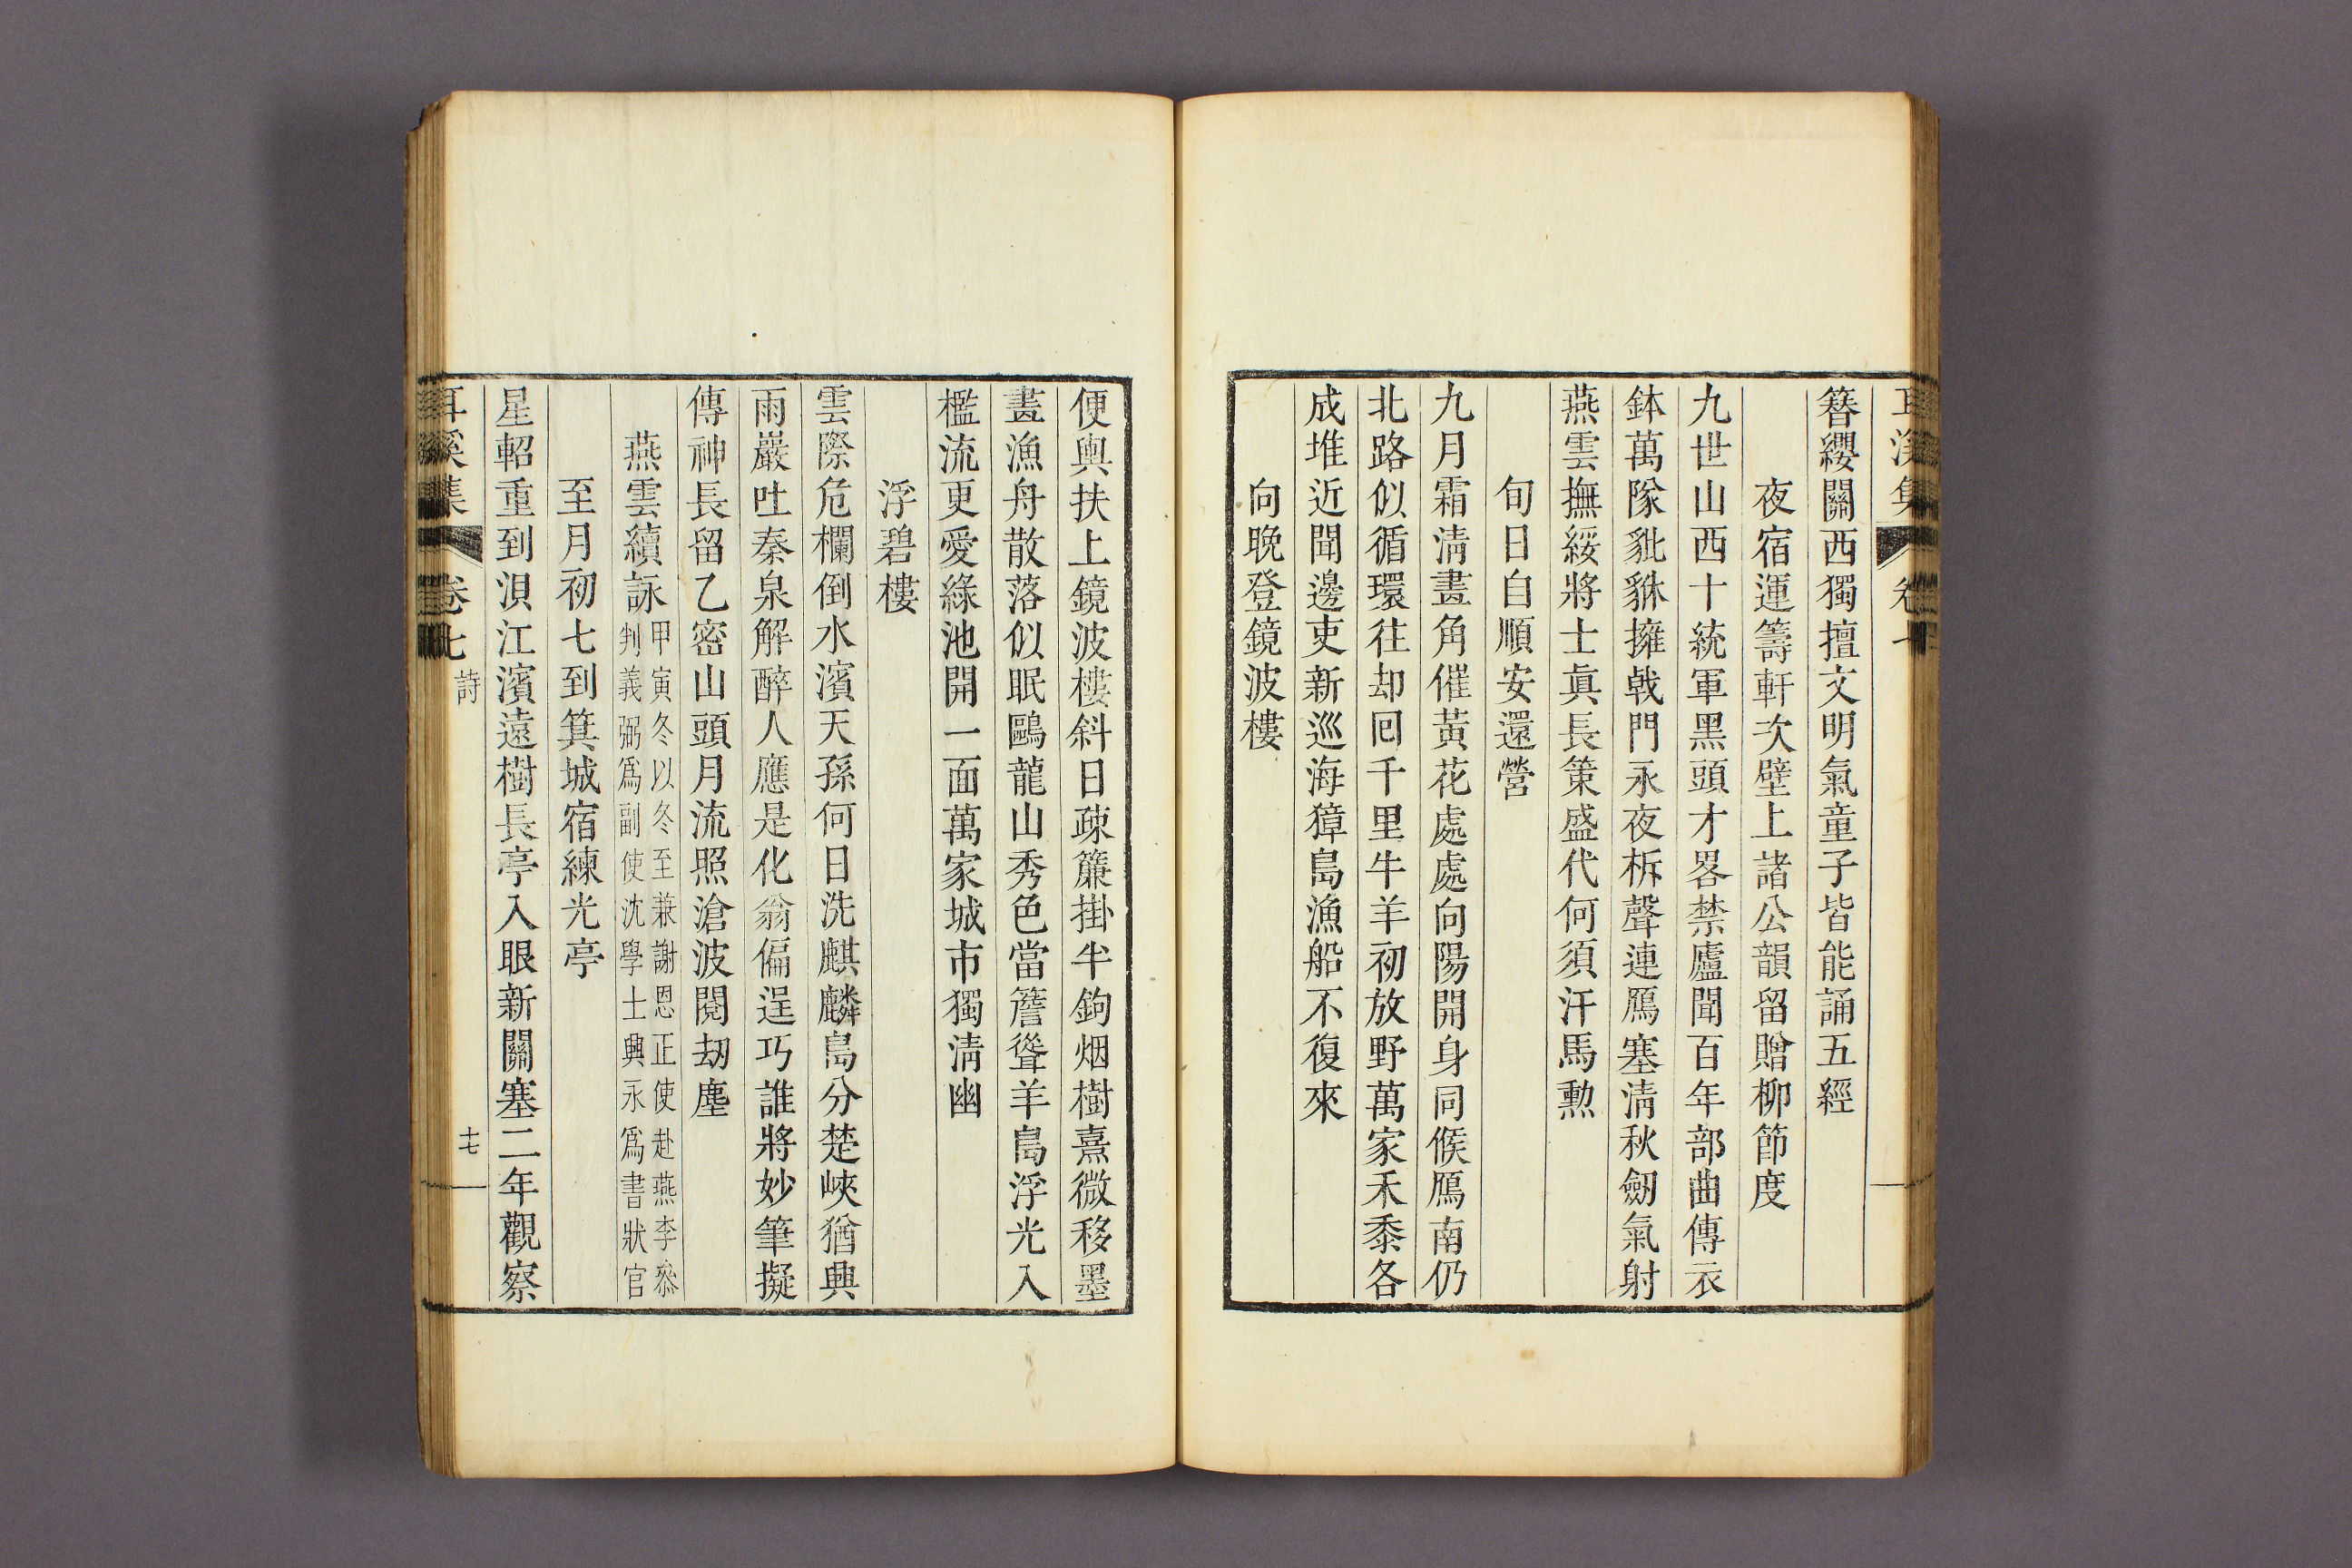 耳溪集 卷七
簪纓關西獨擅文明氣童子皆能誦五經
夜宿運籌軒次壁上諸公韻留贈柳節度
九世山西十統軍黑頭才畧禁廬聞百年部曲傳衣
鉢萬隊豼貅擁戟門永夜柝聲連鴈塞淸秋劒氣射
燕雲撫綏將士眞長策盛代何須汗馬勳
旬日自順安還營
九月霜淸畫角催黃花處處向陽開身同候鴈南仍
北路似循環往却回千里牛羊初放野萬家禾黍各
成堆近聞邊吏新巡海獐島漁船不復來
向晩登鏡波樓
便輿扶上鏡波樓斜日疎簾掛半鉤烟樹熹微移墨
畫漁舟散落似眠鷗龍山秀色當簷聳羊島浮光入
檻流更愛綠池開一面萬家城市獨淸幽
浮碧樓
雲際危欄倒水濱天孫何日洗麒麟島分楚峽猶興
雨巖吐秦泉解醉人應是化翁偏逞巧誰將妙筆擬
傳神長留乙密山頭月流照滄波閱劫塵
燕雲續詠 甲寅冬以冬至兼謝恩正使赴燕李叅
判義弼爲副使沈學士興永爲書狀官
至月初七到箕城宿練光亭
星軺重到浿江濱遠樹長亭入眼新關塞二年觀察
耳溪集 卷七 詩 十七